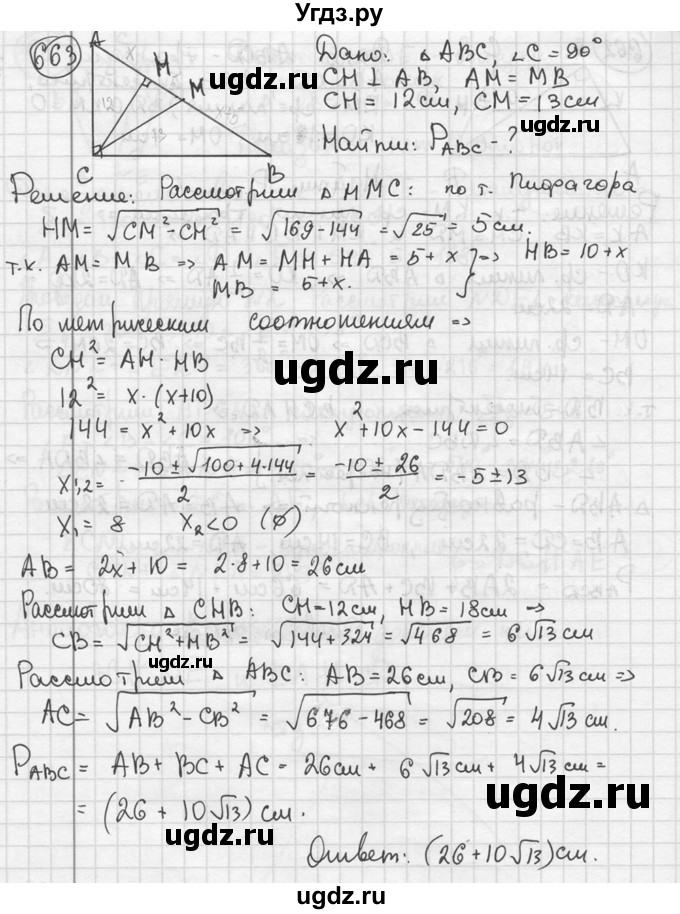 Угдз.ру
663
A
H
M
12
13
C
B
Дано: △ABC, ∠C = 90°
CH ⊥ AB, AM = MB
CH = 12см, CM = 13см
Найти: P_ABC - ?
Решение: Рассмотрим △ HMC: по т. Пифагора
HM = √(CM² - CH²) = √(169 - 144) = √25 = 5 см.
т.к. AM = MB => AM = MH + HA = 5 + x } => HB = 10 + x
MB = 5 + x.
По метрическим соотношениям =>
CH² = AH · HB
12² = x · (x + 10)
144 = x² + 10x => x² + 10x - 144 = 0
x₁,₂ = (-10 ± √(100 + 4·144))/2 = (-10 ± 26)/2 = -5 ± 13
x₁ = 8 x₂ < 0 (∅)
AB = 2x + 10 = 2·8 + 10 = 26 см
Рассмотрим △ CHB: CH = 12см, HB = 18см =>
CB = √(CH² + HB²) = √(144 + 324) = √468 = 6√13 см
Рассмотрим △ ABC: AB = 26см, CB = 6√13 см =>
AC = √(AB² - CB²) = √(676 - 468) = √208 = 4√13 см.
P_ABC = AB + BC + AC = 26см + 6√13 см + 4√13 см =
= (26 + 10√13) см.
Ответ: (26 + 10√13) см.
ugdz.ru
ugdz.ru
ugdz.ru
ugdz.ru
ugdz.ru
ugdz.ru
ugdz.ru
ugdz.ru
ugdz.ru
ugdz.ru